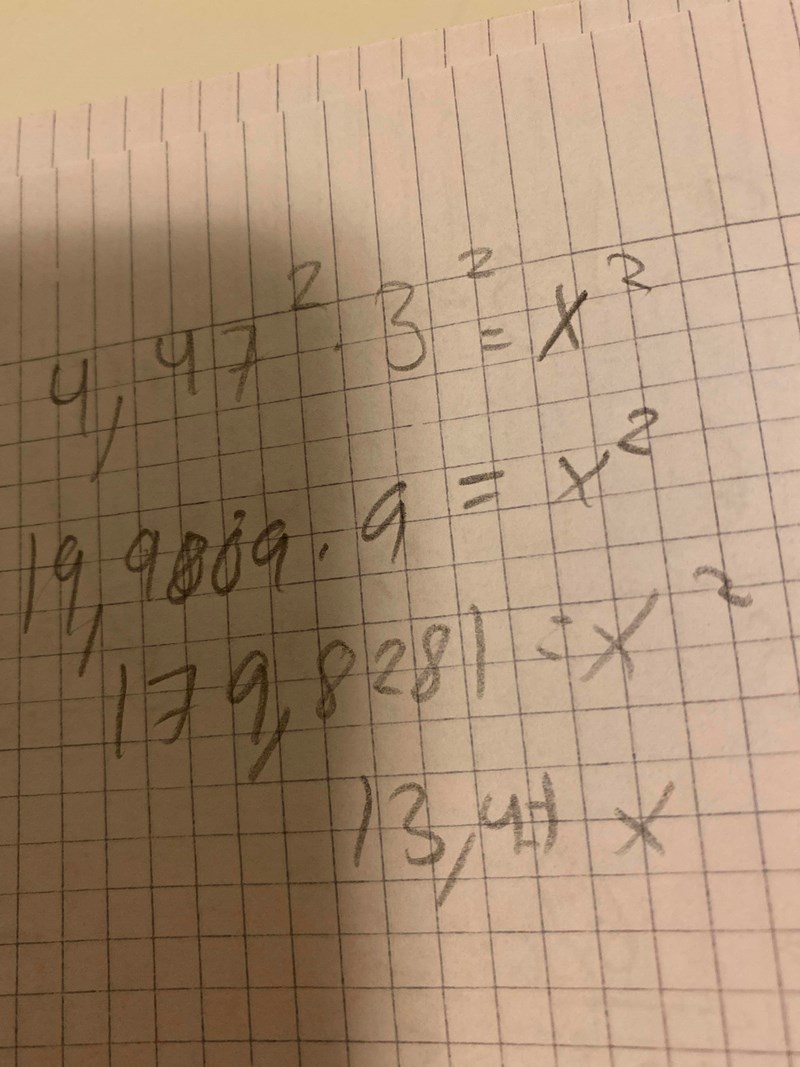 4,47² · 3² = x²
19,9809 · 9 = x²
179,8281 = x²
13,41 x